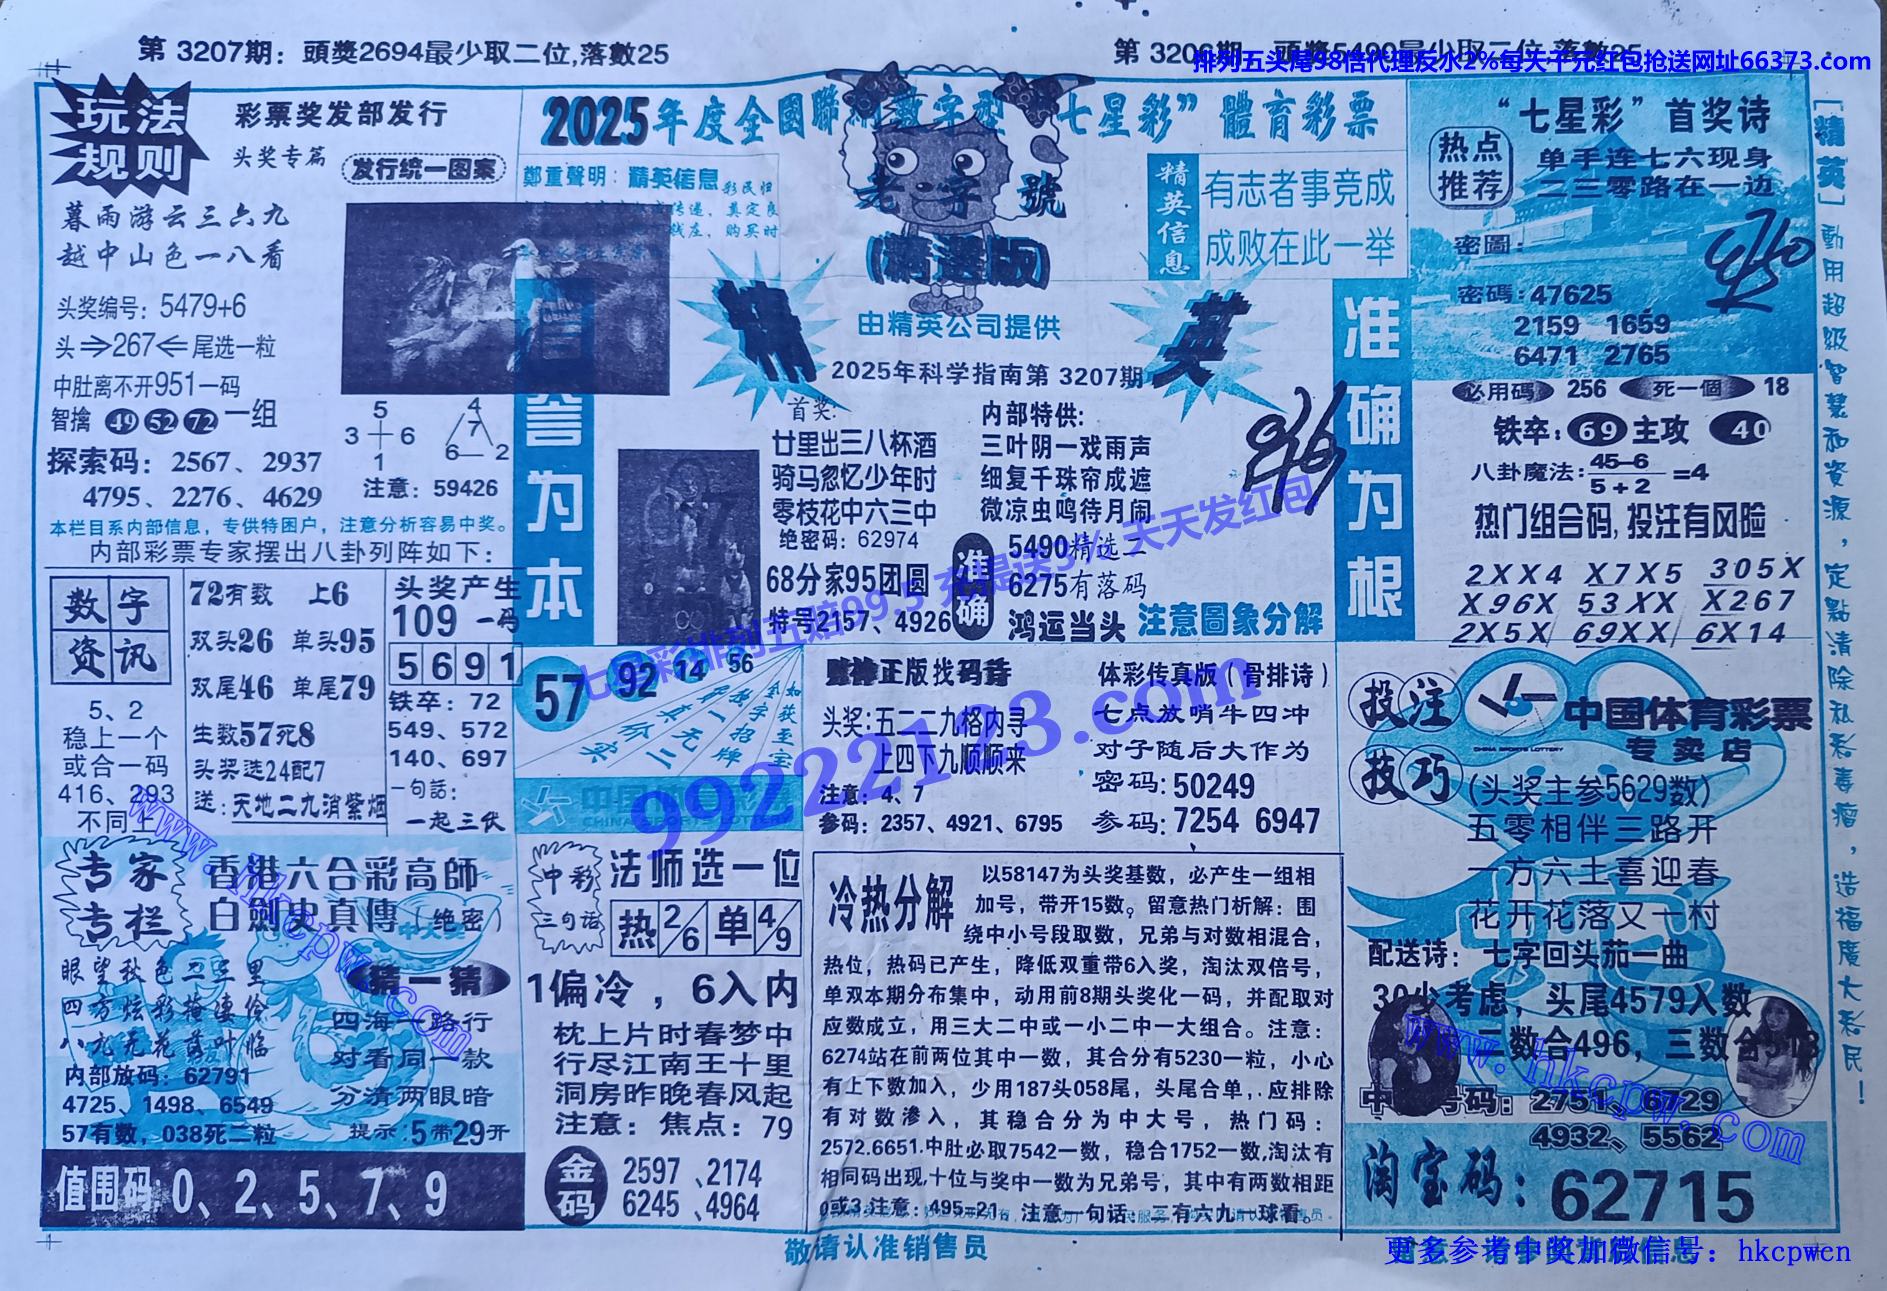 第 3207期：頭獎2694最少取二位,落數25
第 3206期 頭獎5490最少取二位,落數25
排列五头尾98倍代理反水2%每天千元红包抢送网址66373.com
玩法规则
彩票奖发部发行
头奖专篇
发行统一图案
暮雨游云三六九
越中山色一八看
头奖编号：5479+6
头⇒267⇐尾选一粒
中肚离不开951一码
智擒 49 52 72 一组
探索码：2567、2937
4795、2276、4629
5
3 6
1
4
7
6 2
注意：59426
本栏目系内部信息，专供特困户，注意分析容易中奖。
内部彩票专家摆出八卦列阵如下：
数字资讯
5、2
稳上一个
或合一码
416、293
不同上
72有数 上6
双头26 单头95
双尾46 单尾79
生数57死8
头奖选24配7
送：天地二九消紫烟
头奖产生
109 一码
5 6 9 1
铁卒：72
549、572
140、697
一句话：
一起三伏
2025年度全國聯
數字型
七星彩”體育彩票
鄭重聲明：精英信息
老字號
(精選版)
精英信息
有志者事竞成
成败在此一举
精
英
由精英公司提供
2025年科学指南第 3207期
誉为本
准确为根
首奖：
廿里出三八杯酒
骑马忽忆少年时
零枝花中六三中
绝密码：62974
68分家95团圆
特号2157、4926
内部特供：
三叶阴一戏雨声
细复千珠帘成遮
微凉虫鸣待月闹
准确
5490精选二
6275有落码
鸿运当头
注意圖象分解
“七星彩”首奖诗
热点推荐
单手连七六现身
二三零路在一边
密圖：
密碼：47625
2159 1659
6471 2765
必用碼 256 死一個 18
铁卒：69 主攻 40
八卦魔法：45−6 / 5+2 =4
热门组合码,投注有风险
2XX4 X7X5 305X
X96X 53XX X267
2X5X 69XX 6X14
[精英]動用超级智慧和资源，定點清除私彩毒瘤，造福廣大彩民！
57 92 14 56
如获至宝
中国体育彩
CHINA SPORTS LOTTERY
正版找码诗
头奖:五二二九格内寻
上四下九顺顺来
注意：4、7
参码：2357、4921、6795
体彩传真版（骨排诗）
七点放哨牛四冲
对子随后大作为
密码：50249
参码：7254 6947
投注技巧
中国体育彩票
CHINA SPORTS LOTTERY
专卖店
(头奖主参5629数)
五零相伴三路开
一方六土喜迎春
花开花落又一村
配送诗：七字回头茄一曲
30少考虑，头尾4579入数
三数合496，三数合513
号码：2751、6729
4932、5562
淘宝码：62715
专家专栏
香港六合彩高師
白劍史真傳（绝密）
眼望秋色二三里
四方炫彩掩凄伧
八九无花落叶临
内部放码：62791
4725、1498、6549
57有数，038死二粒
猜一猜
四海一路行
对看同一款
分清两眼暗
提示：5带29开
值围码：0、2、5、7、9
中彩三句话
法师选一位
热 2/6 单 4/9
1偏冷，6入内
枕上片时春梦中
行尽江南王十里
洞房昨晚春风起
注意：焦点：79
金码
2597、2174
6245、4964
冷热分解
以58147为头奖基数，必产生一组相
加号，带开15数。留意热门析解：围
绕中小号段取数，兄弟与对数相混合，
热位，热码已产生，降低双重带6入奖，淘汰双倍号，
单双本期分布集中，动用前8期头奖化一码，并配取对
应数成立，用三大二中或一小二中一大组合。注意：
6274站在前两位其中一数，其合分有5230一粒，小心
有上下数加入，少用187头058尾，头尾合单，应排除
有对数渗入，其稳合分为中大号，热门码：
2572.6651.中肚必取7542一数，稳合1752一数,淘汰有
相同码出现,十位与奖中一数为兄弟号，其中有两数相距
0或3.注意：495=21，注意一句话：二有六九一球看。
敬请认准销售员
七星彩排列五赔99.5 充提送3% 天天发红包
99222123.com
www.hkcpw.com
www.hkcpw.com
更多参考中奖加微信号：hkcpwcn